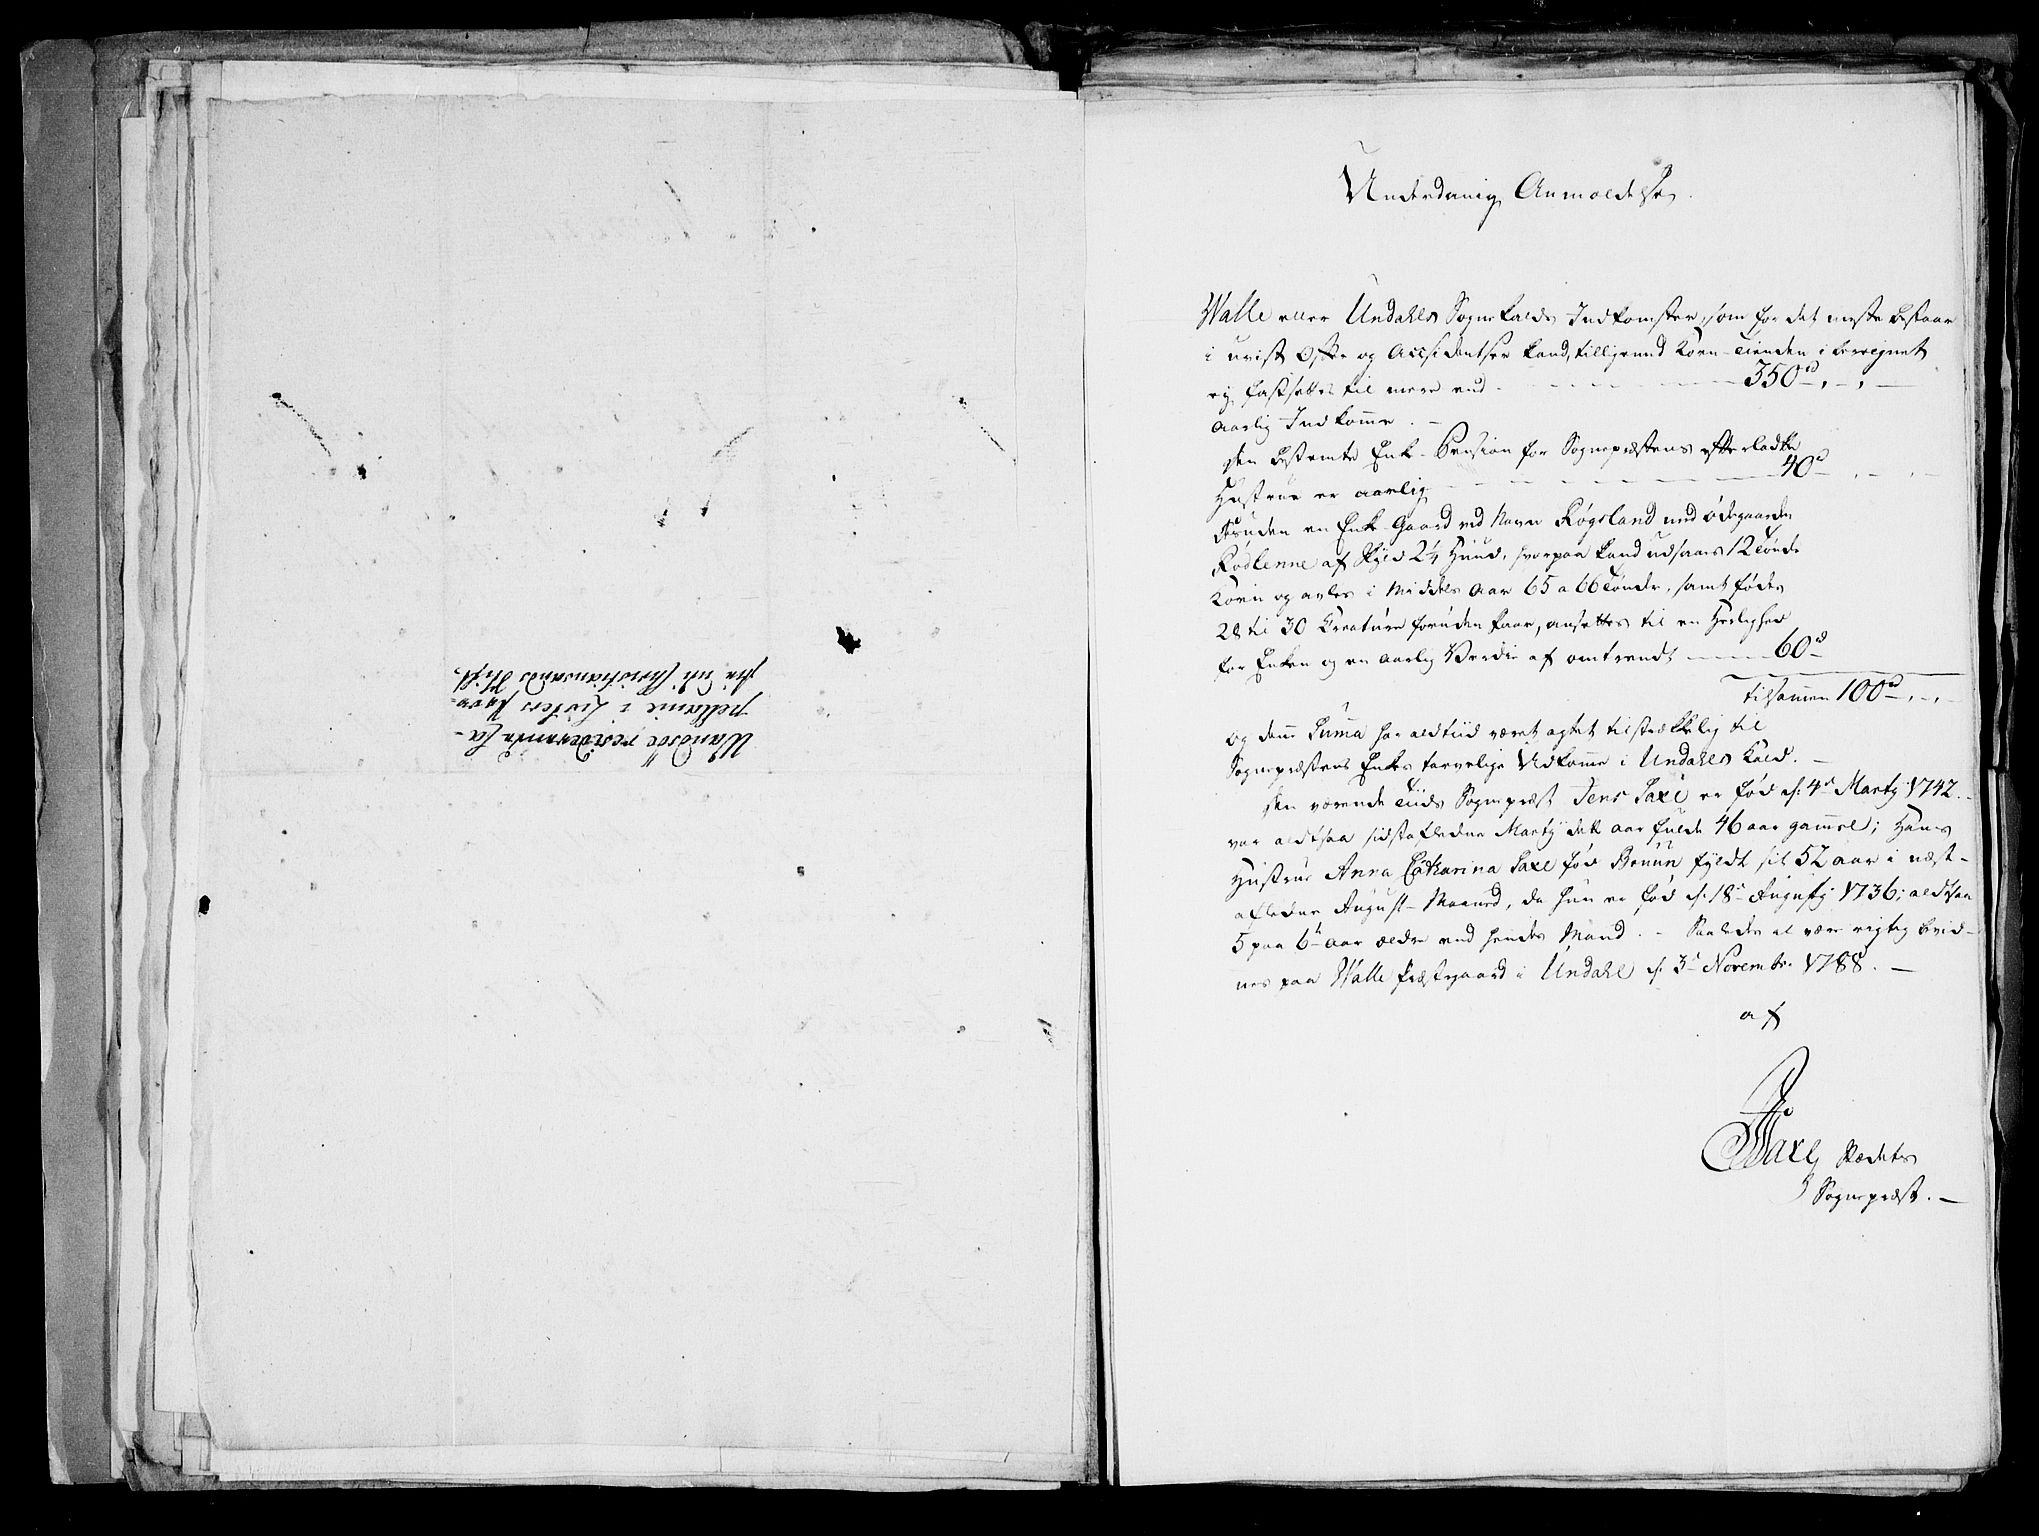 Wandsöe residerende Ca-
pellanie i Listers Prov-
stie udi Christiansands Stift.
Underdanig Anmældelse.
Walle eller Undahls Sognekalds Indkomster, som for det meste bestaar
i uvist Offer og Accidentser kand, tilligemed Korn-Tienden i beregnet
ej fastsettes til mere end - - - 350 rd
aarlig Indkomme. -
Den bestemte Enke-Pension for Sognepræstens efterladte
Hustrue er aarlig - - - 40 rd
Desuden en Enke-Gaard ved Navn Røgsland med Ødegaarden
Rødlenne af Skyld 2 1/4 Huud, hvorpaa kand udsaaes 12 Tønder
Korn og avles i Middels Aar 65 a 66 Tønder, samt fødes
28 til 30 Creature foruden Faar, ansettes til en Herlighed
for Enken og en aarlig Verdie af omtrendt - - - 60 rd
tilsamen 100 rd
og denne Suma har altiid været agtet tilstrækkelig til
Sognepræstens Enkes tarvelige Udkomme i Undahls Kald. -
Den værende Tiids Sognepræst Jens Saxe er fød d: 4de Martij 1742.
var altsaa sidstafledne Martij dette aar fulde 46 aar gammel; Hans
Hustrue Anna Catharina Saxe fød Bruun fyldt sit 52 aar i næst-
afledne August-Maaned, da hun er fød d: 18de Augustj 1736; altsaa
5 paa 6te aar ældre end hendes Mand. - Saaledes at være rigtig bevid-
nes paa Walle Præstegaard i Undahl d: 3de Novembr. 1788. -
af
JSaxe, Stædets
Sognepræst. -